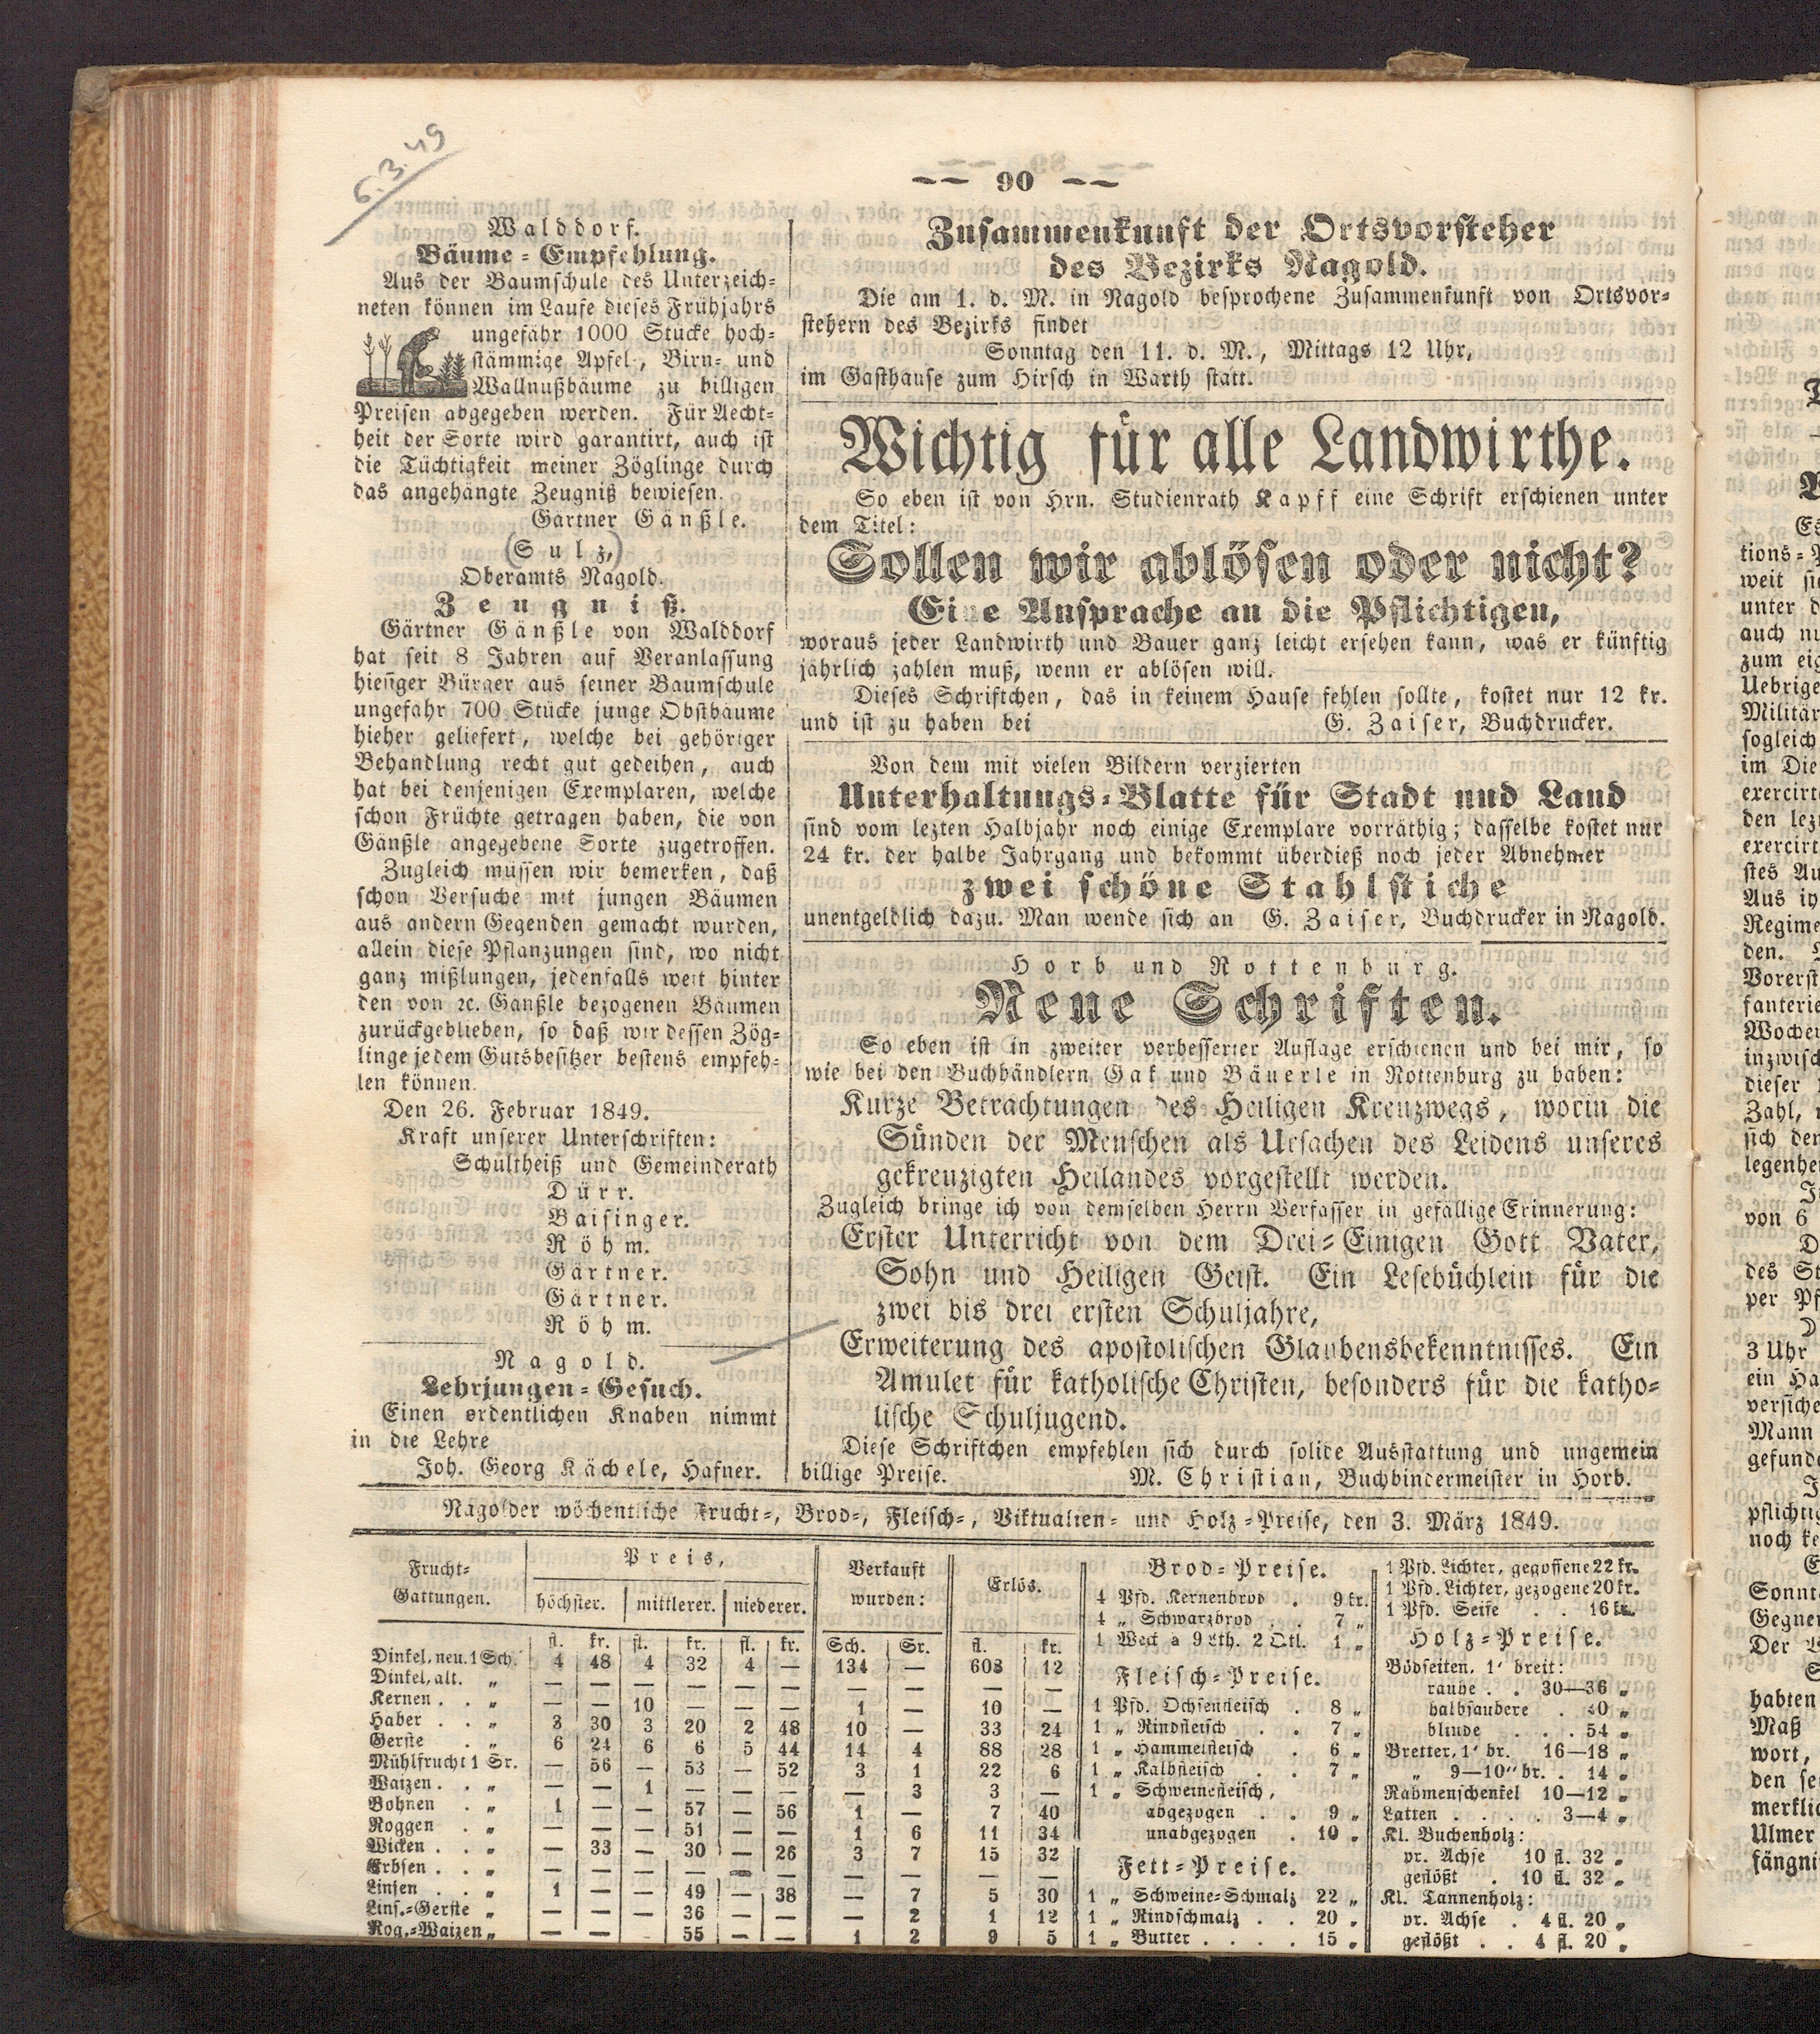 6.3.49
— — 90 — —
Walddorf.
Bäume-Empfehlung.
Aus der Baumschule des Unterzeich-
neten können im Laufe dieses Frühjahrs
ungefähr 1000 Stücke hoch-
stämmige Apfel-, Birn- und
Wallnußbäume zu billigen
Preisen abgegeben werden. Für Aecht-
heit der Sorte wird garantirt, auch ist
die Tüchtigkeit meiner Zöglinge durch
das angehängte Zeugniß bewiesen.
Gärtner Gänßle.
(Sulz,)
Oberamts Nagold.
Zeugniß.
Gärtner Gänßle von Walddorf
hat seit 8 Jahren auf Veranlassung
hiesiger Bürger aus seiner Baumschule
ungefähr 700 Stücke junge Obstbäume
hieher geliefert, welche bei gehöriger
Behandlung recht gut gedeihen, auch
hat bei denjenigen Exemplaren, welche
schon Früchte getragen haben, die von
Gänßle angegebene Sorte zugetroffen.
Zugleich müssen wir bemerken, daß
schon Versuche mit jungen Bäumen
aus andern Gegenden gemacht wurden,
allein diese Pflanzungen sind, wo nicht
ganz mißlungen, jedenfalls weit hinter
den von ꝛc. Gänßle bezogenen Bäumen
zurückgeblieben, so daß wir dessen Zög-
linge jedem Gutsbesitzer bestens empfeh-
len können.
Den 26. Februar 1849.
Kraft unserer Unterschriften:
Schultheiß und Gemeinderath
Dürr.
Baisinger.
Röhm.
Gärtner.
Gärtner.
Röhm.
Nagold.
Lehrjungen-Gesuch.
Einen ordentlichen Knaben nimmt
in die Lehre
Joh. Georg Kächele, Hafner.
Zusammenkunft der Ortsvorsteher
des Bezirks Nagold.
Die am 1. d. M. in Nagold besprochene Zusammenkunft von Ortsvor-
stehern des Bezirks findet
Sonntag den 11. d. M., Mittags 12 Uhr,
im Gasthause zum Hirsch in Warth statt.
Wichtig für alle Landwirthe.
So eben ist von Hrn. Studienrath Kapff eine Schrift erschienen unter
dem Titel:
Sollen wir ablösen oder nicht?
Eine Ansprache an die Pflichtigen,
woraus jeder Landwirth und Bauer ganz leicht ersehen kann, was er künftig
jährlich zahlen muß, wenn er ablösen will.
Dieses Schriftchen, das in keinem Hause fehlen sollte, kostet nur 12 kr.
und ist zu haben bei G. Zaiser, Buchdrucker.
Von dem mit vielen Bildern verzierten
Unterhaltungs-Blatte für Stadt und Land
sind vom lezten Halbjahr noch einige Exemplare vorräthig; dasselbe kostet nur
24 kr. der halbe Jahrgang und bekommt überdieß noch jeder Abnehmer
zwei schöne Stahlstiche
unentgeldlich dazu. Man wende sich an G. Zaiser, Buchdrucker in Nagold.
Horb und Rottenburg.
Neue Schriften.
So eben ist in zweiter verbesserter Auflage erschienen und bei mir, so
wie bei den Buchhändlern Gak und Bäuerle in Rottenburg zu haben:
Kurze Betrachtungen des Heiligen Kreuzwegs, worin die
Sünden der Menschen als Ursachen des Leidens unseres
gekreuzigten Heilandes vorgestellt werden.
Zugleich bringe ich von demselben Herrn Verfasser in gefällige Erinnerung:
Erster Unterricht von dem Drei-Einigen Gott Vater,
Sohn und Heiligen Geist. Ein Lesebüchlein für die
zwei bis drei ersten Schuljahre,
Erweiterung des apostolischen Glaubensbekenntnisses. Ein
Amulet für katholische Christen, besonders für die katho-
lische Schuljugend.
Diese Schriftchen empfehlen sich durch solide Ausstattung und ungemein
billige Preise. M. Christian, Buchbindermeister in Horb.
Nagolder wöchentliche Frucht-, Brod-, Fleisch-, Viktualien- und Holz-Preise, den 3. März 1849.
Frucht-Gattungen. Preis, Verkauft wurden: Erlös.
höchster. mittlerer. niederer.
fl. kr. fl. kr. fl. kr. Sch. Sr. fl. kr.
Dinkel, neu. 1 Sch. 4 48 4 32 4 — 134 — 608 12
Dinkel, alt. „ — — — — — — — — — —
Kernen . . „ — — 10 — — — 1 — 10 —
Haber . . „ 3 30 3 20 2 48 10 — 33 24
Gerste . „ 6 24 6 6 5 44 14 4 88 28
Mühlfrucht 1 Sr. — 56 — 53 — 52 3 1 22 6
Waizen . . „ — — 1 — — — — 3 3 —
Bohnen . „ 1 — — 57 — 56 1 — 7 40
Roggen . „ — — — 51 — — 1 6 11 34
Wicken . . „ — 33 — 30 — 26 3 7 15 32
Erbsen . . „ — — — — — — — — — —
Linsen . . „ 1 — — 49 — 38 — 7 5 30
Lins.-Gerste „ — — — 36 — — — 2 1 12
Rog.-Waizen „ — — - 55 — — 1 2 9 5
Brod-Preise.
4 Pfd. Kernenbrod . 9 kr.
4 „ Schwarzbrod . . 7 „
1 Weck à 9 Lth. 2 Qtl. 1 „
Fleisch-Preise.
1 Pfd. Ochsenfleisch . 8 „
1 „ Rindfleisch . . 7 „
1 „ Hammelfleisch . 6 „
1 „ Kalbfleisch . . 7 „
1 „ Schweinefleisch,
abgezogen . . 9 „
unabgezogen . 10 „
Fett-Preise.
1 „ Schweine-Schmalz 22 „
1 „ Rindschmalz . . 20 „
1 „ Butter . . . . 15 „
1 Pfd. Lichter, gegossene 22 kr.
1 Pfd. Lichter, gezogene 20 kr.
1 Pfd. Seife . . 16 kr.
Holz-Preise.
Bödseiten, 1' breit:
rauhe . . 30—36 „
halbsaubere . 40 „
blinde . . . 54 „
Bretter, 1' br. 16—18 „
„ 9—10" br. . 14 „
Rahmenschenkel 10—12 „
Latten . . . . 3—4 „
Kl. Buchenholz:
pr. Achse 10 fl. 32 „
geflößt . 10 fl. 32 „
Kl. Tannenholz:
pr. Achse . 4 fl. 20 „
geflößt . . 4 fl. 20 „
Es
tions-
weit
unter
auch
zum
Uebrige
Militär
sogleich
im Die
exercirt
den
exercirt
stes
Aus
Regime
den.
Vorerst
fanterie
Woche
inzwisch
dieser
Zahl,
sich
legenhe
von 6
des St
per Pf
3 Uhr
ein
versiche
Mann
gefund
pflichtig
noch
Sonnt
Gegner
Der
habten
Maß
wort,
den
merklich
Ulmer
fängni